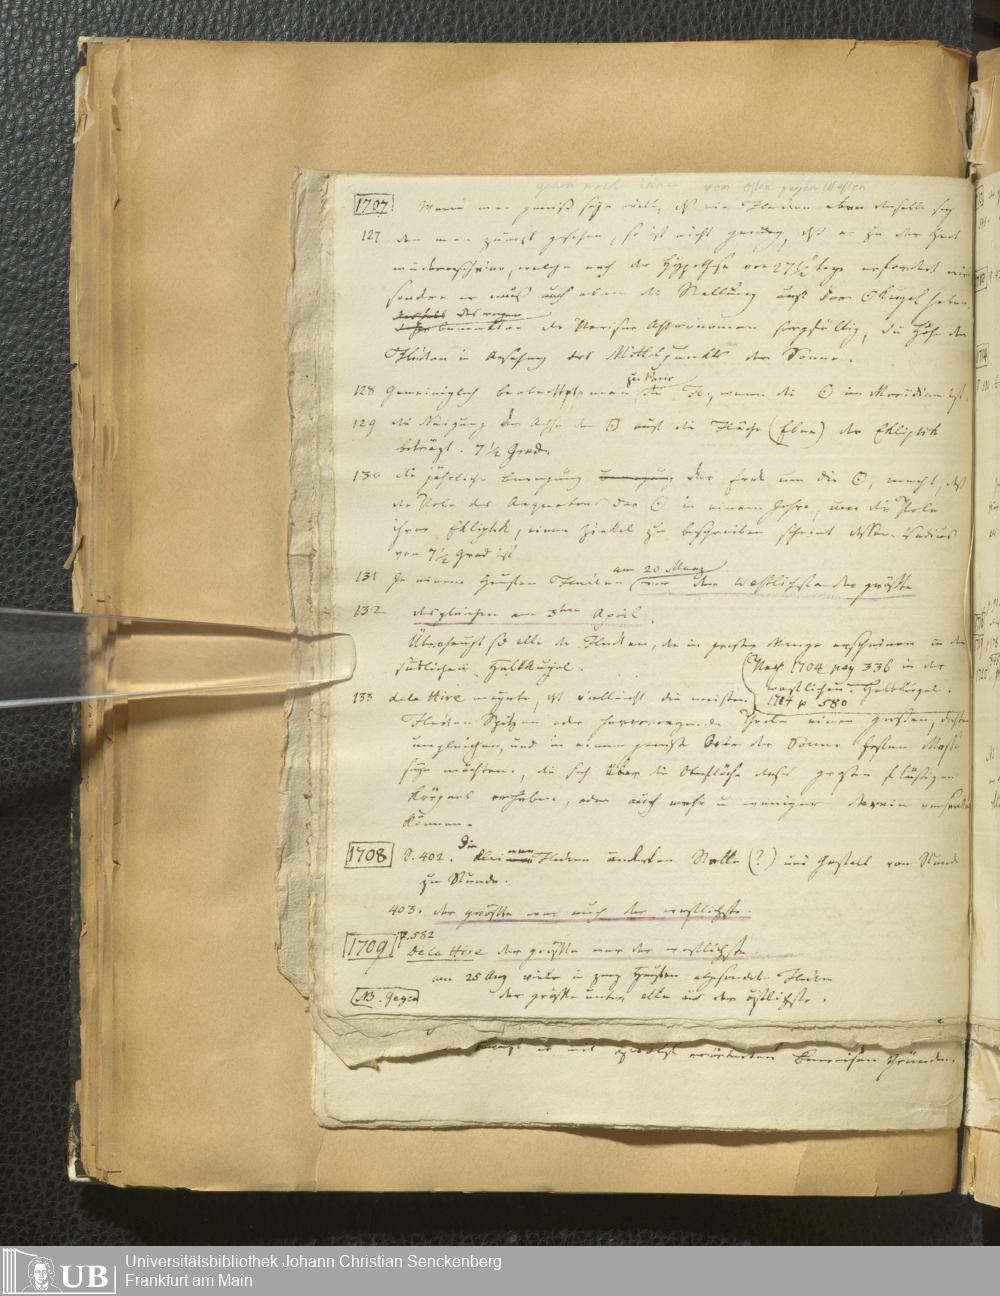 genau nach vom Osten gegen Westen
1707 Wenn man gewiß seyn will, daß ein Flecken eben derselbe sey
127 den man zuerst gesehen, so ist nicht genug, daß er zu der Zeit
wiedererscheine, welche nach der Hypothese von 27 1/2 Tage erfordert wird
sondern er muß auch eben die Stellung auf der ☉ Kugel haben.
deshalb des wegen
bemerkten die Pariser Astronomen sorgfältig, die Höhe der
Flecken in Ansehung des Mittelpunkts der Sonne.
128 Gemeiniglich beobachtete man zu Paris die Fl., wenn die ☉ im Meridian ist.
129 die Neigung der Achse der ☉ auf die Fläche (Ebne) der Ekliptik
beträgt. 7 1/2 Grad.
130 die jährliche Bewegung der Erde um die ☉, macht, daß
die Pole des Aequators der ☉ in einem Jahre, um die Pole
ihrer Ekliptik, einen Zirkel zu beschreiben scheint dessen Radius
von 7 1/2 Grad ist
131 In einem Haufen Flecken am 20 Merz war der westlichste der größte
132 desgleichen am 3ten April.
Überhaupt sd alle die Flecken, die in großer Menge erschienen in der
südlichen Halbkugel.
(Nach 1704 pag 336 in der
westlichen Halbkugel.
1714 p 580
133 dela Hire meynte, daß vielleicht die meisten
Flecken Spitzen oder hervorragende Theile einer großen, dichten
ungleichen, und in einem gewiße Orte der Sonne festen Masse
seyn möchten, die sich über die Oberfläche dieses großen flüssigen
Körpers erheben, oder auch mehr u weniger darein versenken
können.
1708 S. 402. Die kleinern Flecken änderten Stelle (?) und Gestalt von Stunde
zu Stunde.
403. der größte war auch der westlichste.
1709 p. 582
De la Hire der größte war der westlichste.
am 25 Aug wieder in zwey Haufen abgesonderte Flecken
NB. Gegen der größte unter allen war der östlichste.
Gründen.